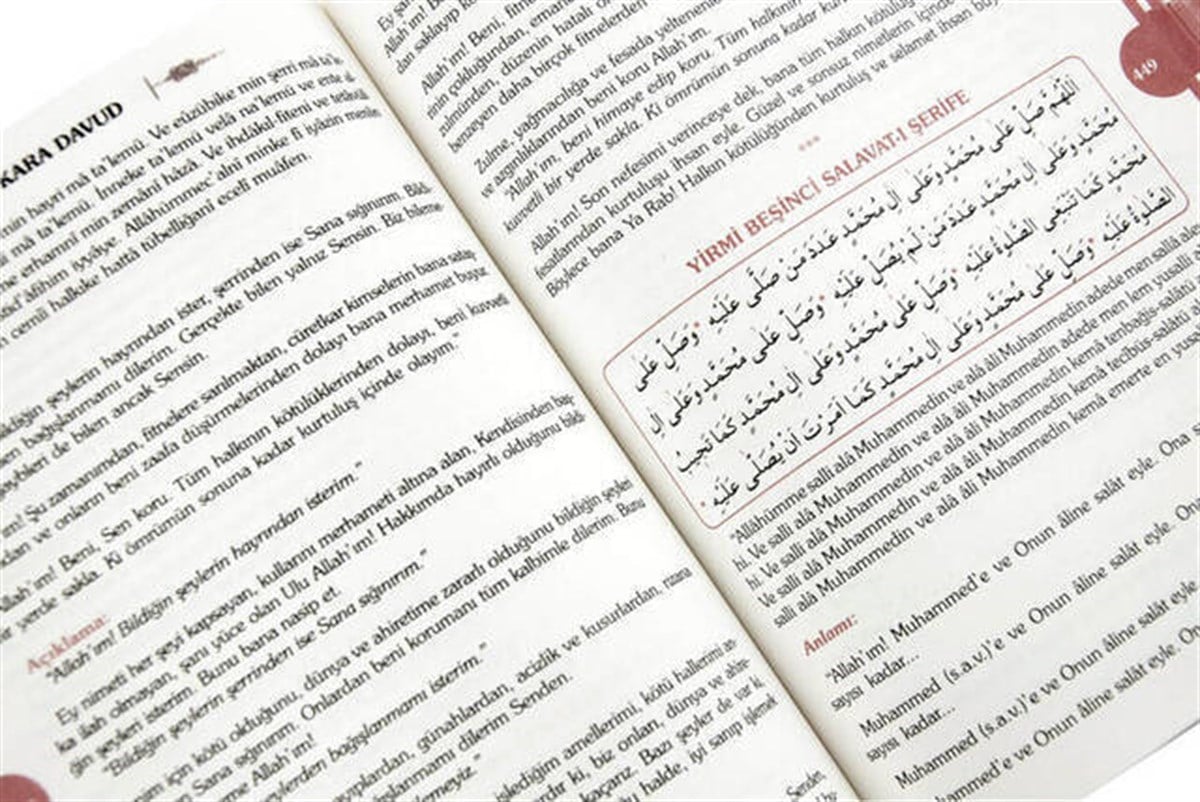 KARA DAVUD
nün hayri mâ ta'lemü. Ve eûzübike min şerri mâ ta'le-
mâ ta'lemü. İnneke ta'lemü velâ na'lemü ve ente al-
erhamnî min zemâni hâzâ. Ve ihdâkıl-fiteni ve tetâvüli
tad'âfihim iyyâye. Allâhümmec'alnî minke fî iyâzin meniin
cemîi halkıke hattâ tübelliğanî ecelî muâfen.
ildiğin şeylerin hayrından ister, şerrinden ise Sana sığınırım. Bildi-
den bağışlanmamı dilerim. Gerçekte bilen yalnız Sensin. Biz bileme-
gaybleri de bilen ancak Sensin.
Şu zamanımdan, fitnelere sarılmaktan, cüretkar kimselerin bana sataş-
dan ve onların beni zaafa düşürmelerinden dolayı bana merhamet buyur.
Allah'im! Beni, Sen koru. Tüm halkının kötülüklerinden dolayı, beni kuvvetli
bir yerde sakla. Ki ömrümün sonuna kadar kurtuluş içinde olayım."
Açıklama:
"Allah'im! Bildiğin şeylerin hayrından isterim."
Ey nimeti her şeyi kapsayan, kullarını merhameti altına alan, Kendisinden baş-
ka ilah olmayan, şanı yüce olan Ulu Allah'im! Hakkımda hayırlı olduğunu bildi-
ğin şeyleri isterim. Bunu bana nasip et.
"Bildiğin şeylerin şerrinden ise Sana sığınırım."
nim için kötü olduğunu, dünya ve ahiretime zararlı olduğunu bildiğin şeyler
Sana sığınırım. Onlardan beni korumanı tüm kalbimle dilerim. Bunu
me Allah'im!
şeylerden bağışlanmamı isterim."
ayıplardan, günahlardan, acizlik ve kusurlardan, rızana
ışlanmamı dilerim Senden.
lemeyiz."
işlediğim amellerimi, kötü hallerimi an-
ardır ki, biz onları, dünya ve ahire-
kaçarız. Bazı şeyler de var ki
u halde, iyi sanıp işlemek
Senden,
Ey
Allah'im! B
dan saklayıp
Allah'im! Beni, fitne
sinin çokluğundan, emane
zulmünden, düzenin hatalı o
benzeyen daha birçok fitnelerden
Zulme, yağmacılığa ve fesada yeltenenle
ve azgınlıklarından beni koru Allah'im.
"Allah'im, beni himaye edip koru. Tüm halkının
kuvvetli bir yerde sakla. Ki ömrümün sonuna kadar kur
Allah'im! Son nefesimi verinceye dek, bana tüm halkın kötülüğ
fesatlarından kurtuluşu ihsan eyle. Güzel ve sonsuz nimetlerin içinde
Böylece bana Ya Rab! Halkın kötülüğünden kurtuluş ve selamet ihsan buy
449
***
YİRMİ BEŞİNCİ SALAVAT-I ŞERİFE
اَللّٰهُمَّ صَلِّ عَلٰى مُحَمَّدٍ وَعَلٰى اٰلِ مُحَمَّدٍ عَدَدَ مَنْ صَلّٰى عَلَيْهِ * وَصَلِّ عَلٰى
مُحَمَّدٍ وَعَلٰى اٰلِ مُحَمَّدٍ عَدَدَ مَنْ لَمْ يُصَلِّ عَلَيْهِ * وَصَلِّ عَلٰى مُحَمَّدٍ وَعَلٰى اٰلِ
مُحَمَّدٍ كَمَا تَنْبَغِى الصَّلٰوةُ عَلَيْهِ * وَصَلِّ عَلٰى مُحَمَّدٍ وَعَلٰى اٰلِ مُحَمَّدٍ كَمَا تَجِبُ
الصَّلٰوةُ عَلَيْهِ * وَصَلِّ عَلٰى مُحَمَّدٍ وَعَلٰى اٰلِ مُحَمَّدٍ كَمَا اَمَرْتَ اَنْ يُصَلّٰى عَلَيْهِ *
"Allâhümme salli alâ Muhammedin ve alâ âli Muhammedin adede men sallâ aley-
hi. Ve salli alâ Muhammedin ve alâ âli Muhammedin adede men lem yusalli
hi. Ve salli alâ Muhammedin ve alâ âli Muhammedin kemâ tenbağis-salâtü
Ve salli alâ Muhammedin ve alâ âli Muhammedin kemâ tecibüs-salâtü
salli alâ Muhammedin ve alâ âli Muhammedin kemâ emerte en yusa
Anlamı:
"Allah'im! Muhammed'e ve Onun âline salât eyle. Ona
sayısı kadar...
Muhammed (s.a.v.)'e ve Onun âline salât eyle. Ona
sayısı kadar...
Muhammed (s.a.v.)'e ve Onun âline salât eyle
ammed'e ve Onun âline salât eyle. O